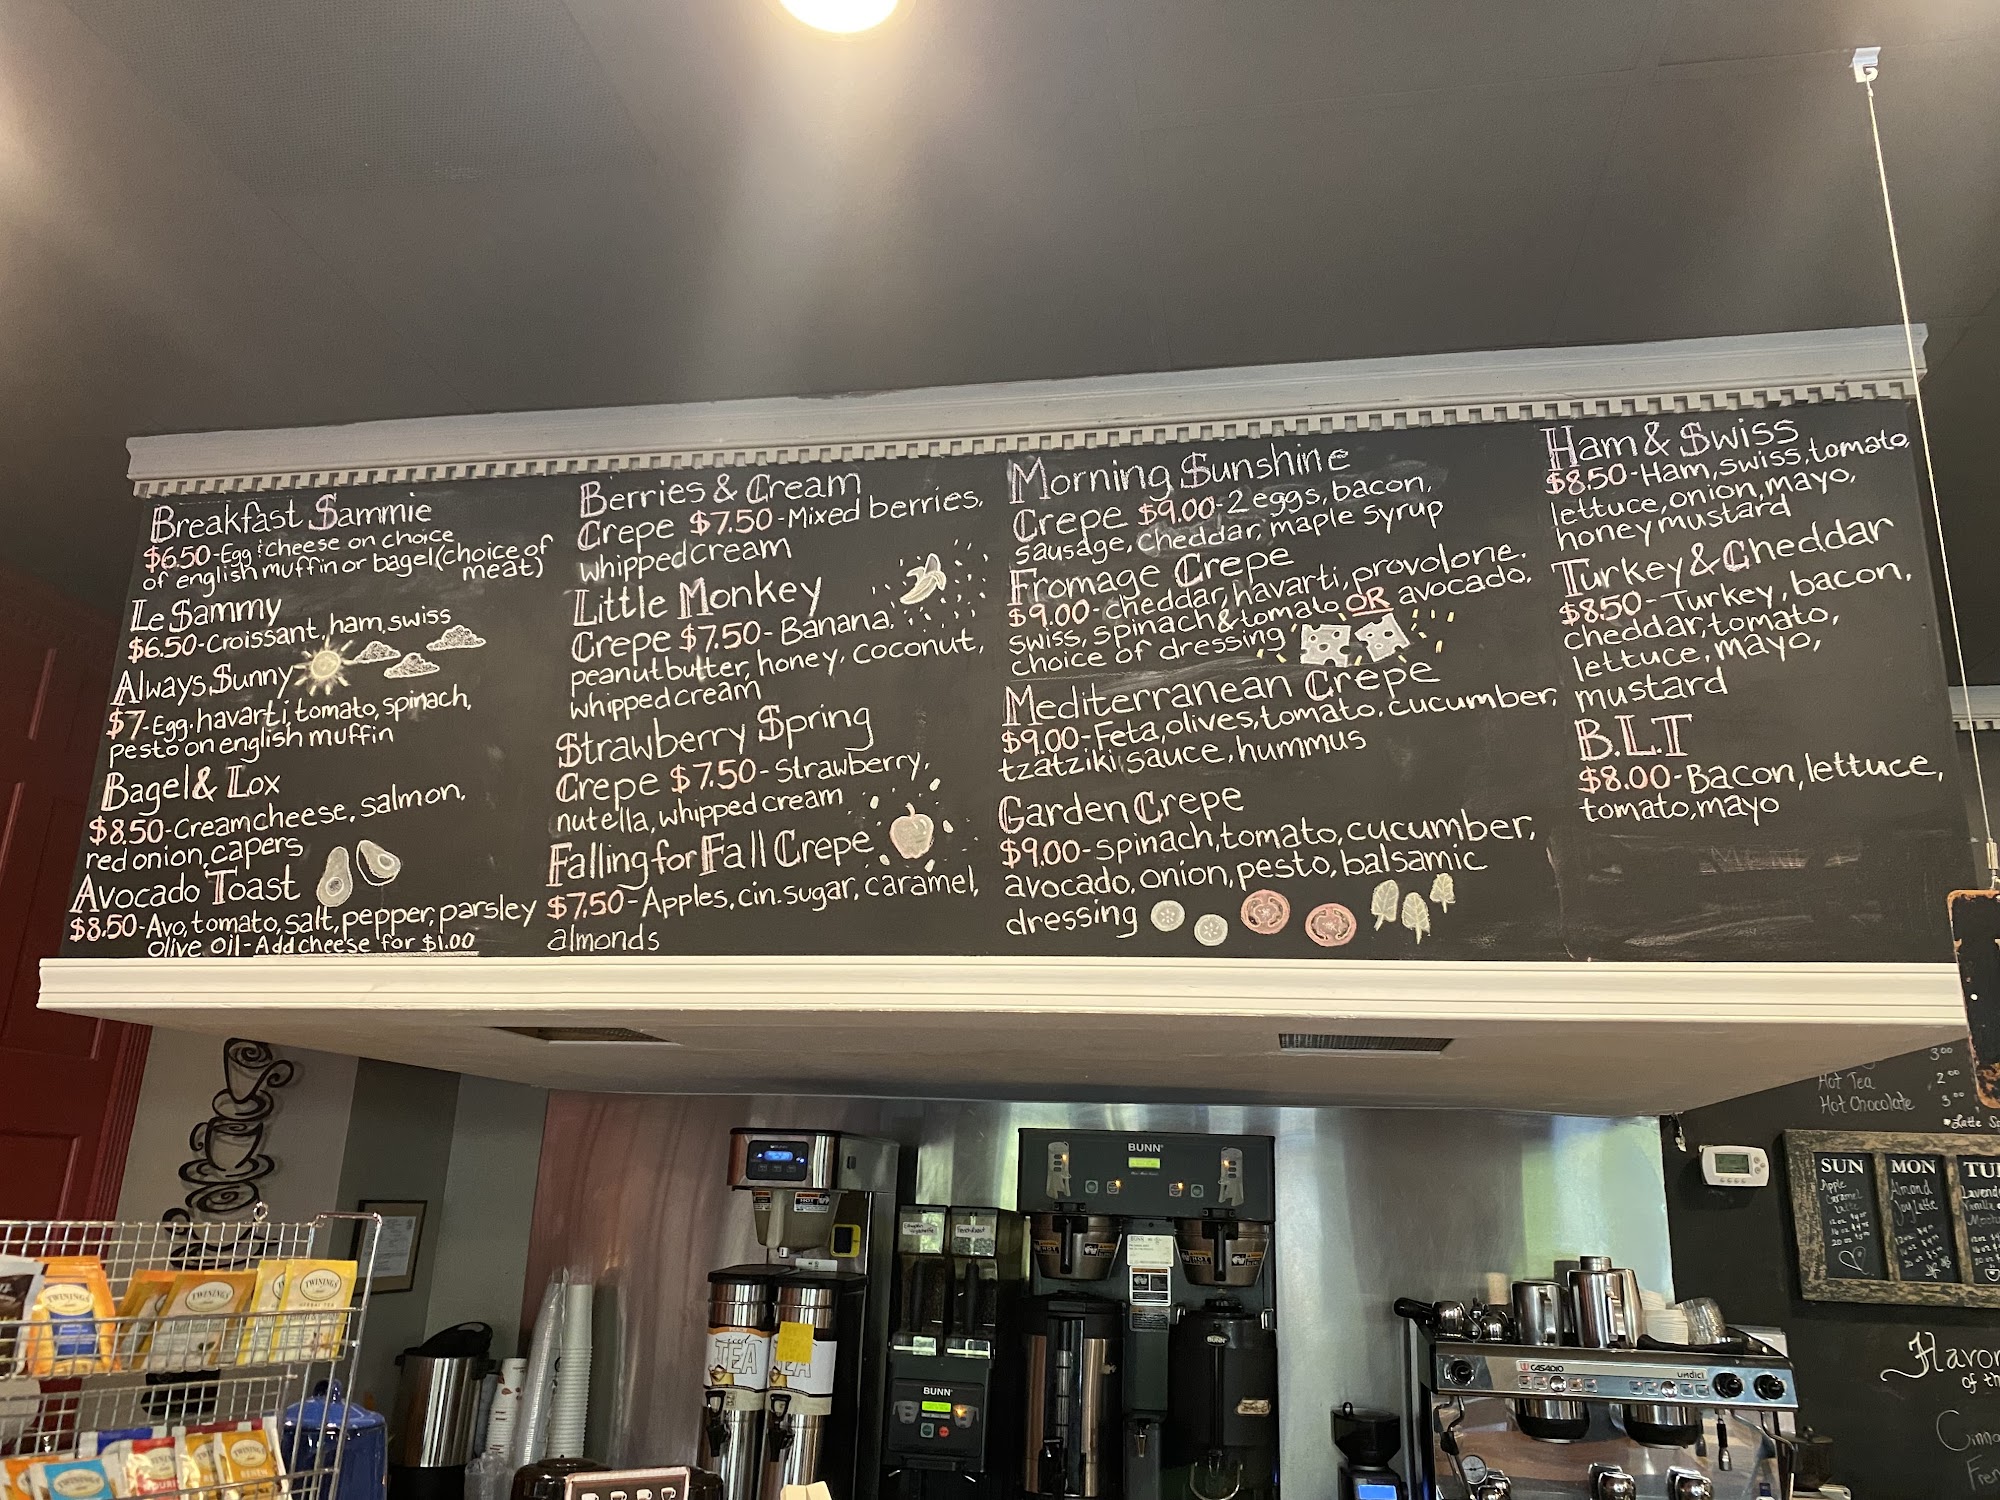 Breakfast Sammie
$6.50-Egg & cheese on choice
of english muffin or bagel (choice of
meat)
Le Sammy
$6.50-Croissant, ham, swiss
Always Sunny
$7-Egg, havarti, tomato, spinach,
pesto on english muffin
Bagel & Lox
$8.50-Creamcheese, salmon,
red onion, capers
Avocado Toast
$8.50-Avo, tomato, salt, pepper, parsley
olive oil-Add cheese for $1.00
Berries & Cream
Crepe $7.50-Mixed berries,
whipped cream
Little Monkey
Crepe $7.50-Banana,
peanut butter, honey, coconut,
whipped cream
Strawberry Spring
Crepe $7.50-Strawberry,
nutella, whipped cream
Falling for Fall Crepe
$7.50-Apples, cin. sugar, caramel,
almonds
Morning Sunshine
Crepe $9.00-2 eggs, bacon,
sausage, cheddar, maple syrup
Fromage Crepe
$9.00-cheddar, havarti, provolone,
swiss, spinach & tomato OR avocado,
choice of dressing
Mediterranean Crepe
$9.00-Feta, olives, tomato, cucumber,
tzatziki sauce, hummus
Garden Crepe
$9.00-spinach, tomato, cucumber,
avocado, onion, pesto, balsamic
dressing
Ham & Swiss
$8.50-Ham, swiss, tomato,
lettuce, onion, mayo,
honey mustard
Turkey & Cheddar
$8.50-Turkey, bacon,
cheddar, tomato,
lettuce, mayo,
mustard
B.L.T
$8.00-Bacon, lettuce,
tomato, mayo
3.00
Hot Tea 2.00
Hot Chocolate 3.00
SUN
Apple
Caramel
Latte
MON
Almond
Joy Latte
Flavor
of th
BUNN
BUNN
BUNN
TEA
TEA
CASADIO
undici
TWININGS
TWININGS
TWININGS
HERBAL TEA